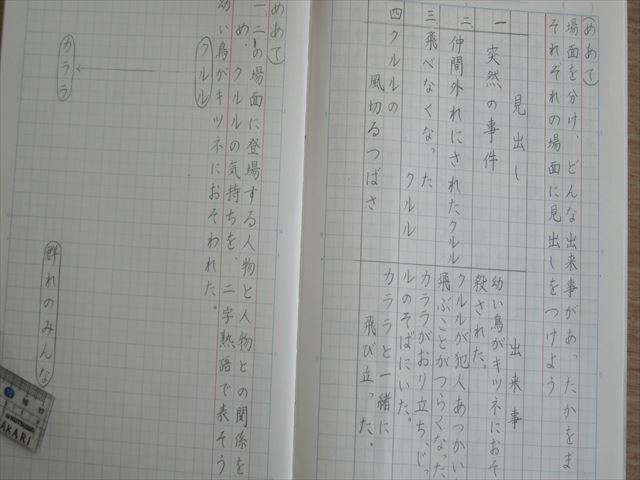 めあて
場面を分け、どんな出来事があったかをま
それぞれの場面に見出しをつけよう
見出し
出来事
一 突然の事件
幼い鳥がキツネにおそ
殺された。
二 仲間外れにされたクルル
クルルが犯人あつかい
飛ぶことがつらくなった
三 飛べなくなった
クルル
カララがおり立ち、じっ
ルのそばにいた。
四 クルルの
風切るつばさ
カララと一緒に
飛び立った。
めあて
一二の場面に登場する人物と人物との関係を
め、クルルの気持ちを、二字熟語で表そう
幼い鳥がキツネにおそわれた。
クルル
カララ
群れのみんな
AKARI